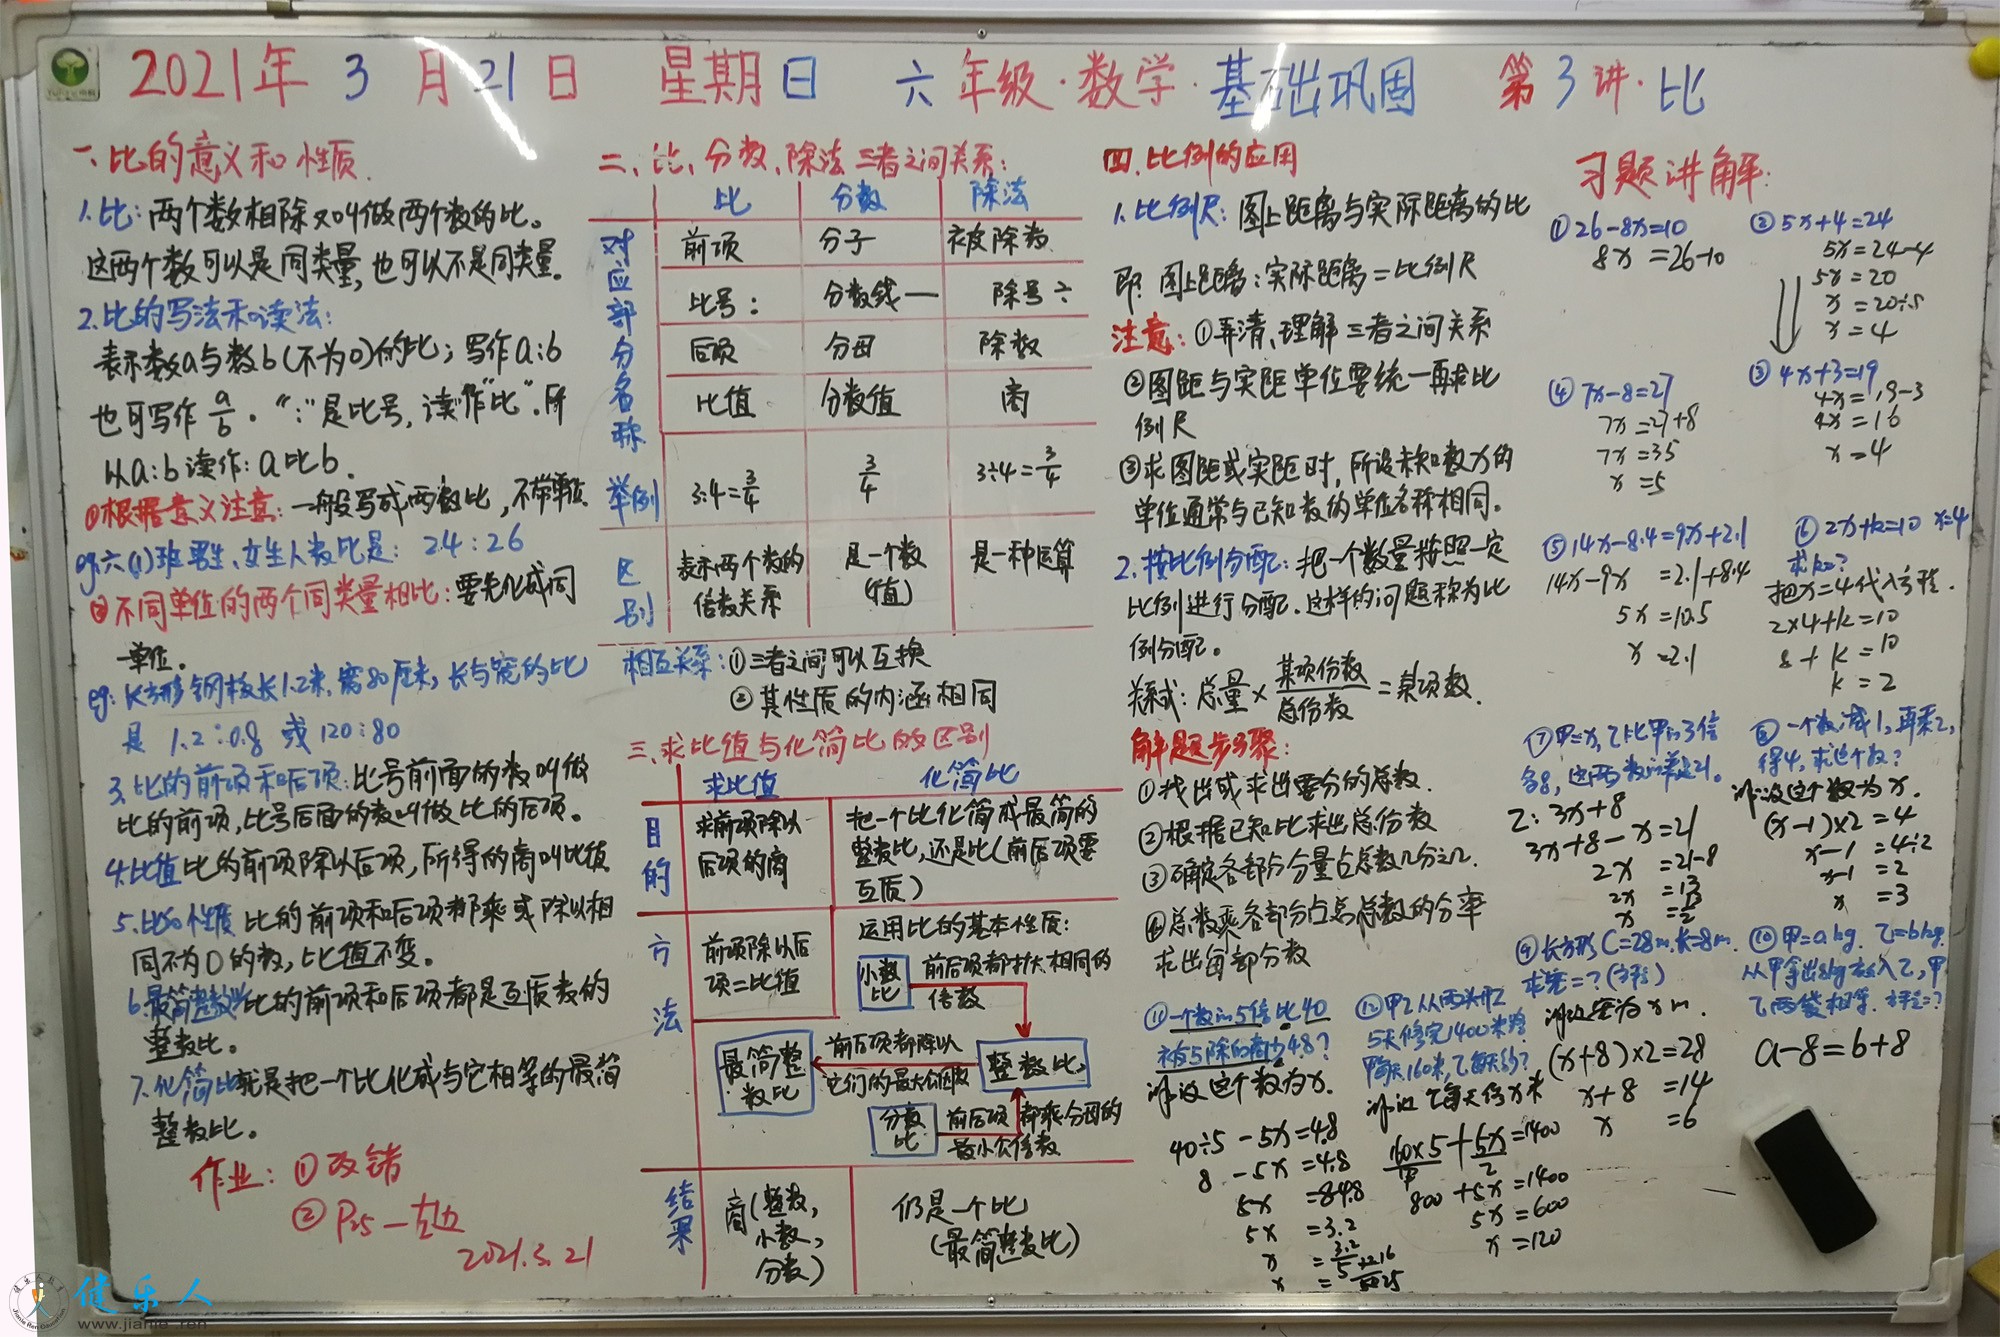 2021年3月21日 星期日 六年级·数学·基础巩固 第3讲·比
一、比的意义和性质.
1.比:两个数相除又叫做两个数的比。
这两个数可以是同类量,也可以不是同类量。
2.比的写法和读法:
表示数a与数b(不为0)的比;写作a:b
也可写作a/b。":"是比号,读作"比".所
以a:b读作:a比b.
①根据意义注意:一般写成两数比,不带单位
eg:六(1)班男生、女生人数比是: 24:26
②不同单位的两个同类量相比:要先化成同
单位。
eg:长方形钢板长1.2米,宽80厘米,长与宽的比
是 1.2:0.8 或120:80
3.比的前项和后项:比号前面的数叫做
比的前项,比号后面的数叫做比的后项。
4.比值 比的前项除以后项,所得的商叫比值
5.比的性质 比的前项和后项都乘或除以相
同不为0的数,比值不变。
6.最简整数比 比的前项和后项都是互质数的
整数比。
7.化简比 就是把一个比化成与它相等的最简
整数比。
作业: ①改错
②P25—左边
2021.3.21
二、比、分数、除法三者之间关系:
比 分数 除法
对应部分名称
前项 分子 被除数
比号: 分数线— 除号÷
后项 分母 除数
比值 分数值 商
举例 3:4=3/4 3/4 3÷4=3/4
区别 表示两个数的倍数关系 是一个数(值) 是一种运算
相互关系:①三者之间可以互换
②其性质的内涵相同
三、求比值与化简比的区别
求比值 化简比
目的 求前项除以后项的商 把一个比化简成最简的整数比,还是比(前后项要互质)
方法 前项除以后项=比值 运用比的基本性质:
小数比 前后项都扩大相同的倍数
最简整数比 前后项都除以它们的最大公因数 整数比
分数比 前后项都乘分母的最小公倍数
结果 商(整数,小数,分数) 仍是一个比(最简整数比)
四.比例的应用
1.比例尺:图上距离与实际距离的比
即:图上距离:实际距离=比例尺
注意:①弄清、理解三者之间关系
②图距与实距单位要统一再求比
例尺
③求图距或实距时,所设未知数x的
单位通常与已知数的单位名称相同。
2.按比例分配:把一个数量按照一定
比例进行分配.这样的问题称为比
例分配。
关系式:总量×某项份数/总份数=某项数.
解题步骤:
①找出或求出要分的总数.
②根据已知比求出总份数
③确定各部分分量占总数几分之几.
④总数乘各部分占总数的分率
求出每部分数
习题讲解:
①26-8x=10
8x=26-10
②5x+4=24
5x=24-4
5x=20
x=20÷5
x=4
④7x-8=27
7x=27+8
7x=35
x=5
③4x+3=19
4x=19-3
4x=16
x=4
⑤14x-8.4=9x+2.1
14x-9x=2.1+8.4
5x=10.5
x=2.1
⑥2x+k=10 x=4
求k=?
把x=4代入方程.
2×4+k=10
8+k=10
k=2
⑦甲=x,乙比甲的3倍
多8,这两数的差是21.
乙:3x+8
3x+8-x=21
2x=21-8
2x=13
x=13/2
⑧一个数减1,再乘2,
得4,求这个数?
解:设这个数为x.
(x-1)×2=4
x-1=4÷2
x-1=2
x=3
⑨长方形C=28m.长=8m.
求宽=?(方程)
解:设宽为xm.
(x+8)×2=28
x+8=14
x=6
⑩甲=akg.乙=bkg.
从甲拿出8kg放入乙,甲
乙两袋相等.方程=?
a-8=b+8
⑪一个数的5倍比40
被5除的商少4.8?
解:设这个数为x.
40÷5-5x=4.8
8-5x=4.8
5x=8-4.8
5x=3.2
⑫甲乙从两头开工
5天修完1400米路
甲每天160米,乙每天修?
解:设乙每天修x米
160×5+5x=1400
800+5x=1400
5x=600
x=120
健乐人
www.jianle.ren